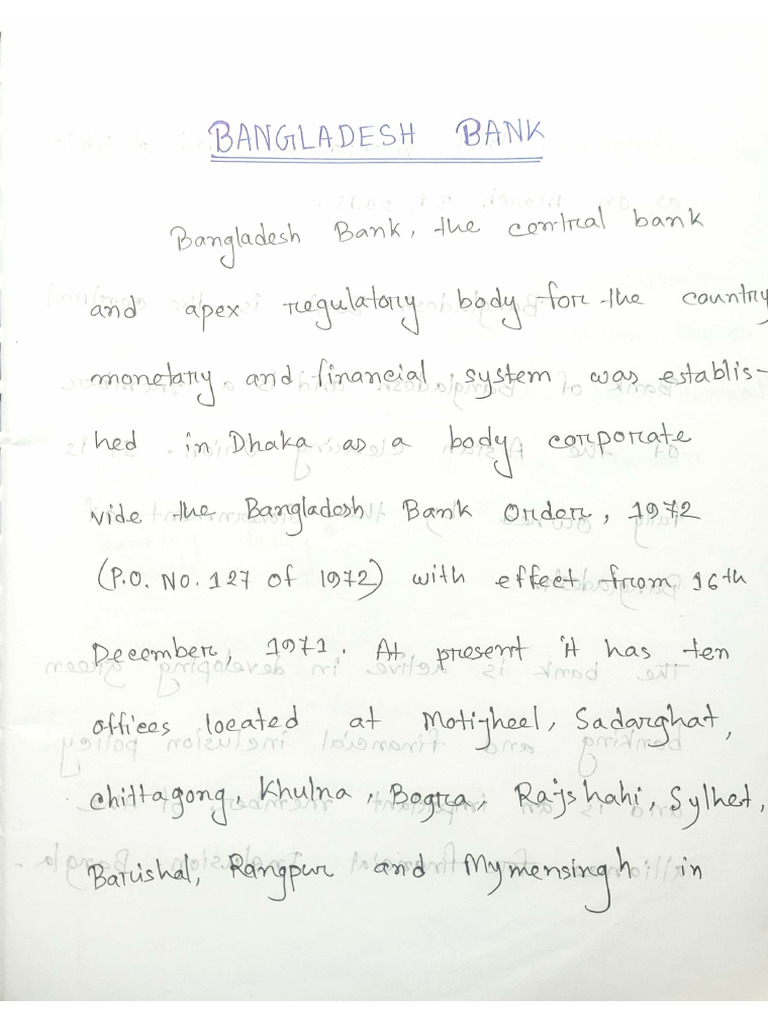 BANGLADESH BANK
Bangladesh Bank, the central bank
and apex regulatory body for the country
monetary and financial system was establis-
hed in Dhaka as a body corporate
vide the Bangladesh Bank Order, 1972
(P.O. No. 127 of 1972) with effect from 16th
December, 1971. At present it has ten
offices located at Motijheel, Sadarghat,
chittagong, Khulna, Bogra, Rajshahi, Sylhet,
Barishal, Rangpur and Mymensingh in